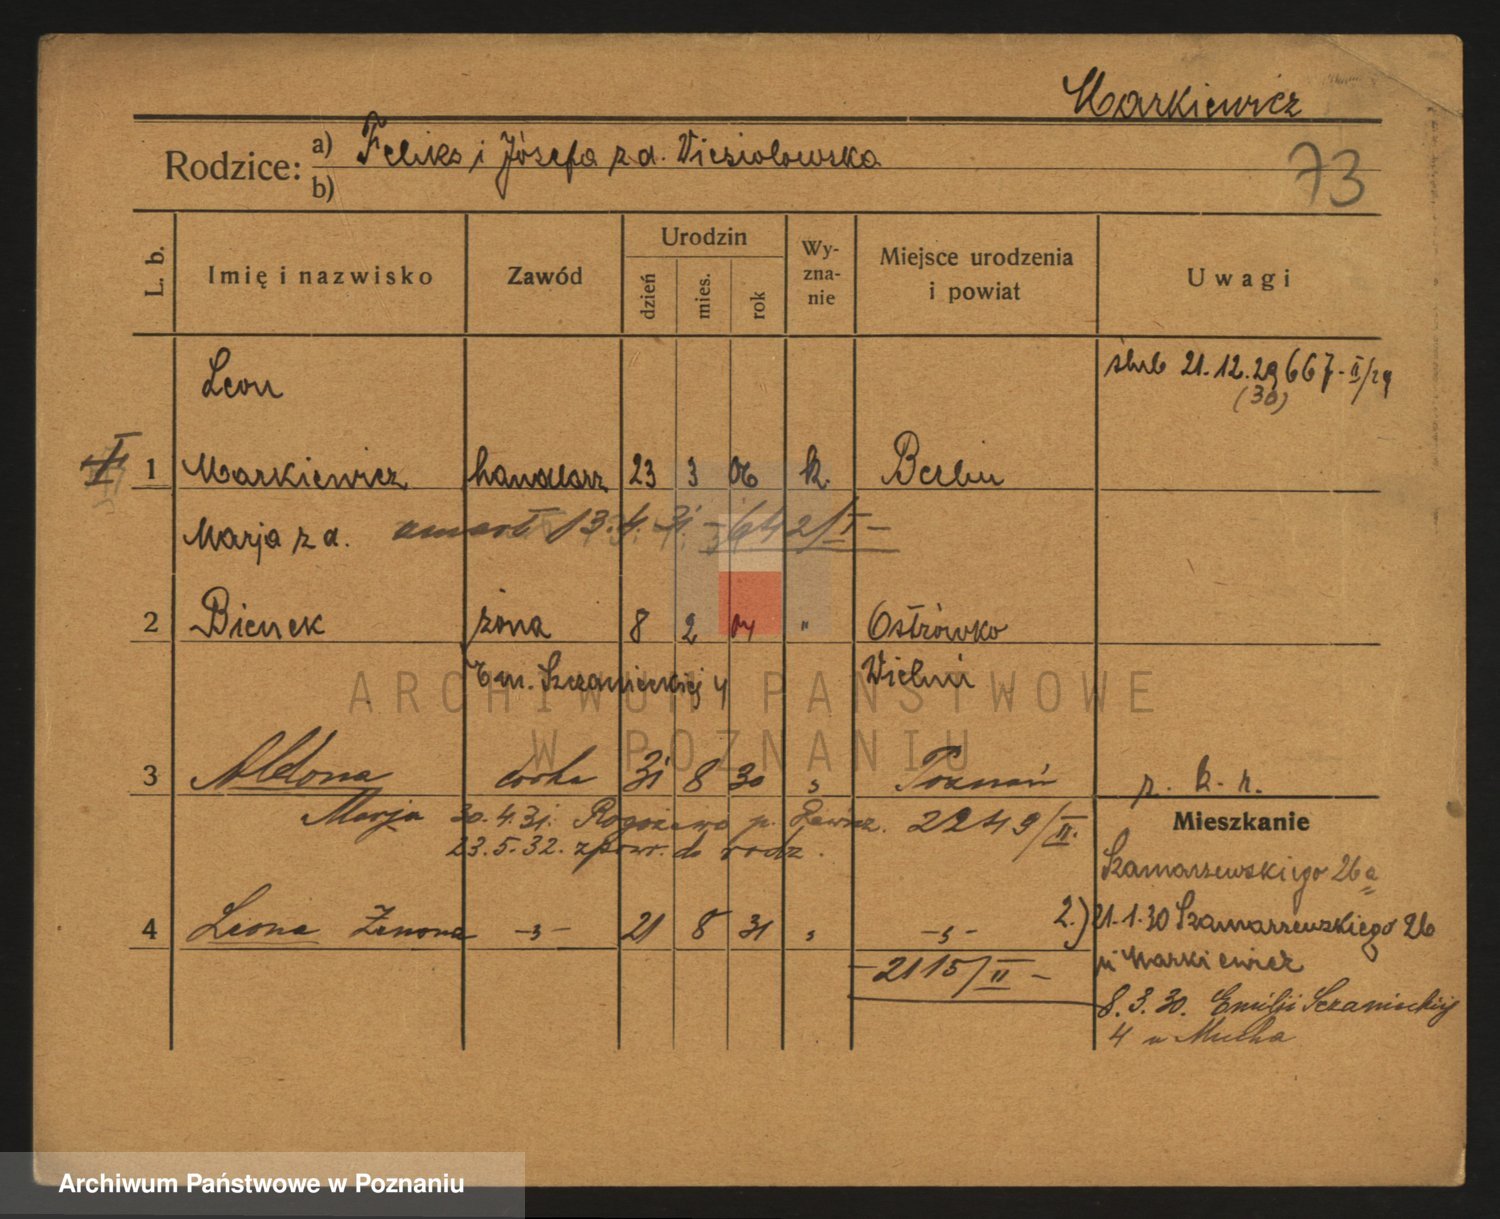 Markiewicz
Rodzice: a) Feliks i Józefa z d. Wiesiolowska
b)
73
L. b. Imię i nazwisko Zawód Urodzin dzień mies. rok Wyzna-nie Miejsce urodzenia i powiat Uwagi
Leon
ślub 21.12.29 667-II/29
(30)
I 1 Markiewicz handlarz 23 3 06 k. Berlin
Marja z d. umarł 13.4.31 - 642/II -
2 Bienek żona 8 2 04 " Ostrówko
Em. Szczanieckiej 4 Wieluń
3 Aldona córka 31 8 30 " Poznań p. k. r.
Marja 30.4.31. Rogożewo p. Rawicz. 2249/II.
23.5.32. z powr. do rodz.
4 Leona Zenona -"- 21 8 31 " -"-
-2115/II-
Mieszkanie
Szamarzewskiego 26a
2.) 21.1.30 Szamarzewskiego 26
u Markiewicz
8.3.30. Emilji Sczanieckiej
4 u Mucha
ARCHIWUM PAŃSTWOWE
W POZNANIU
Archiwum Państwowe w Poznaniu